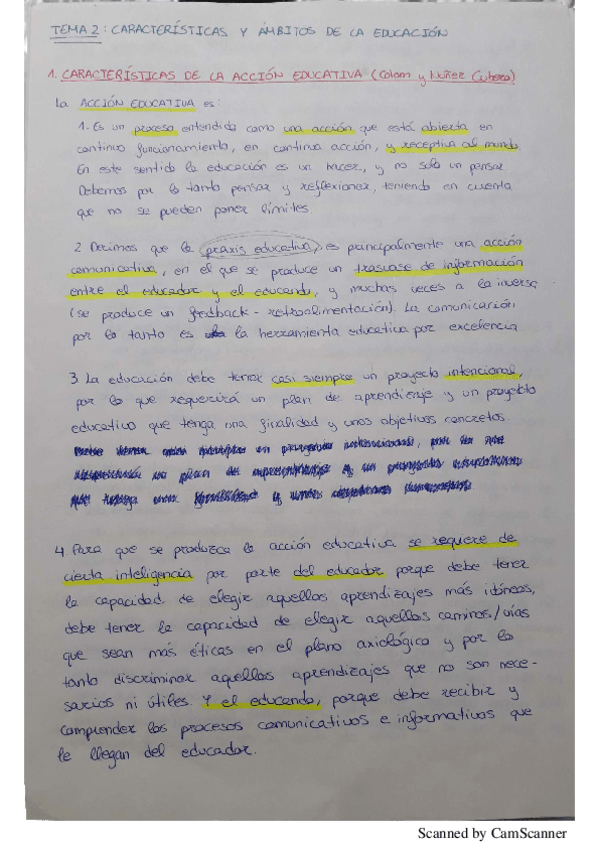 TEMA 2: CARACTERÍSTICAS Y ÁMBITOS DE LA EDUCACIÓN
1. CARACTERÍSTICAS DE LA ACCIÓN EDUCATIVA (Colom y Núñez Cubero)
La ACCIÓN EDUCATIVA es:
1. Es un proceso entendido como una acción que está abierta en
continuo funcionamiento, en continua acción, y receptiva al mundo.
En este sentido la educación es un hacer, y no solo un pensar.
Debemos por lo tanto pensar y reflexionar, teniendo en cuenta
que no se pueden poner límites.
2 Decimos que la praxis educativa, es principalmente una acción
comunicativa, en el que se produce un trasvase de información
entre el educador y el educando, y muchas veces a la inversa
(se produce un feedback - retroalimentación). La comunicación
por lo tanto es la herramienta educativa por excelencia
3. La educación debe tener casi siempre un proyecto intencional,
por lo que requerirá un plan de aprendizaje y un proyecto
educativo que tenga una finalidad y unos objetivos concretos.
4. Para que se produzca la acción educativa se requiere de
cierta inteligencia por parte del educador porque debe tener
la capacidad de elegir aquellos aprendizajes más idóneos,
debe tener la capacidad de elegir aquellos caminos/vías
que sean más éticas en el plano axiológico y por lo
tanto discriminar aquellos aprendizajes que no son nece-
sarios ni útiles. Y el educando, porque debe recibir y
comprender los procesos comunicativos e informativos que
le llegan del educador.
Scanned by CamScanner